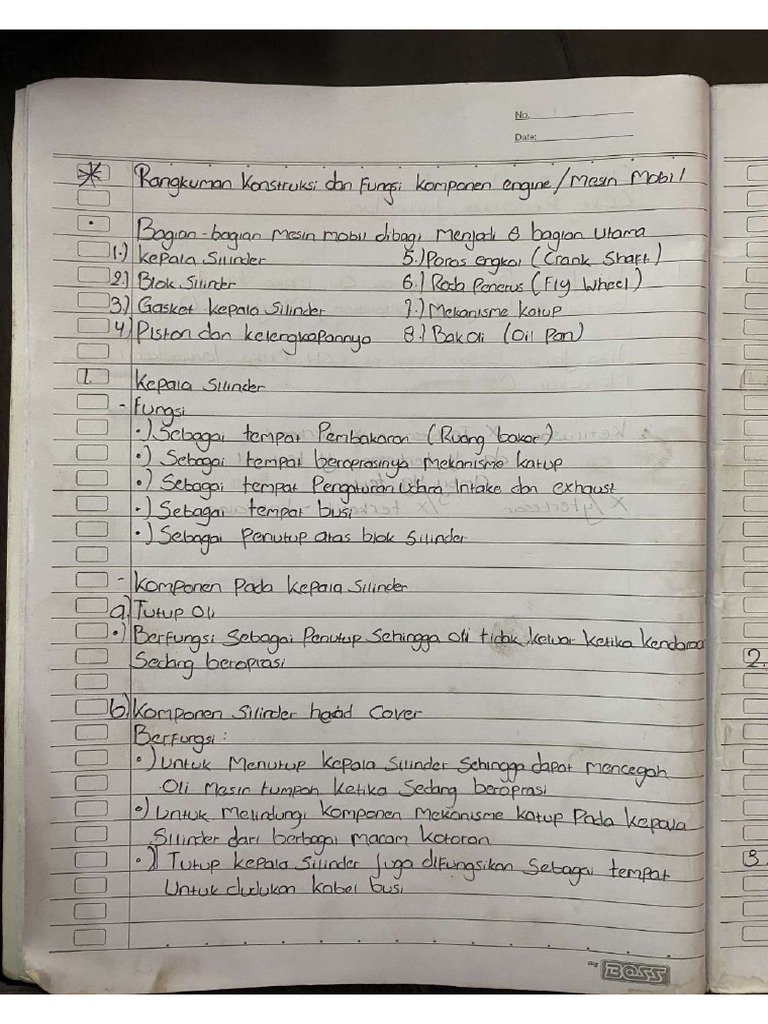 No.
Date:
* Rangkuman Konstruksi dan Fungsi Komponen engine/Mesin Mobil
• Bagian-bagian mesin mobil dibagi Menjadi 8 bagian Utama
1.) Kepala Silinder 5.) Poros engkol (Crank Shaft)
2.) Blok Silinder 6.) Roda Penerus (Fly Wheel)
3.) Gasket kepala Silinder 7.) Mekanisme katup
4.) Piston dan kelengkapannya 8.) Bak Oli (Oil Pan)
1. Kepala Silinder
- Fungsi
•) Sebagai tempat Pembakaran (Ruang bakar)
•) Sebagai tempat beroprasinya Mekanisme katup
•) Sebagai tempat Pengaturan udara Intake dan exhaust
•) Sebagai tempat busi
•) Sebagai Penutup atas blok Silinder
- Komponen Pada Kepala Silinder
a.) Tutup Oli
•) Berfungsi Sebagai Penutup Sehingga Oli tidak keluar ketika kendaraan
Sedang beroprasi
b.) Komponen Silinder head Cover
Berfungsi :
•) Untuk Menutup Kepala Silinder Sehingga dapat mencegah
Oli Mesin tumpah ketika Sedang beroprasi
•) Untuk Melindungi komponen Mekanisme katup Pada kepala
Silinder dari berbagai macam kotoran
•) Tutup kepala Silinder Juga difungsikan Sebagai tempat
Untuk dudukan kabel busi
BOSS
2.
3